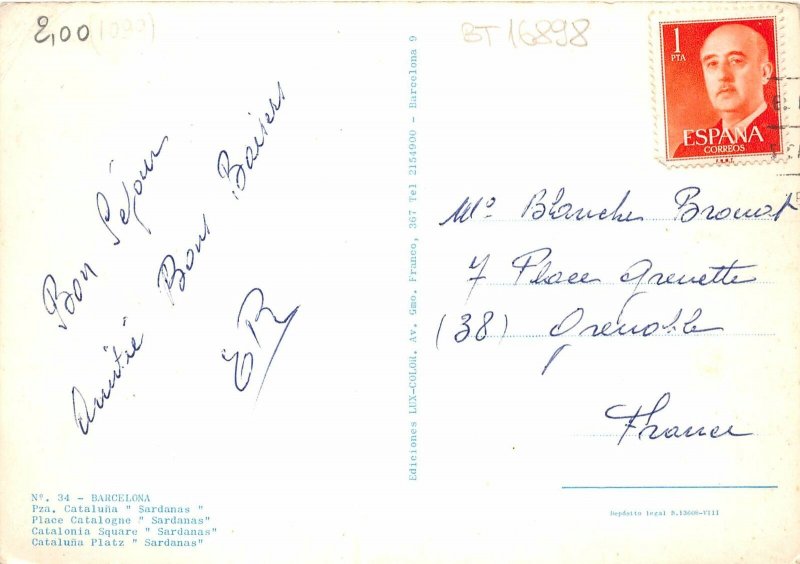 2,00 (1090)
BT 16898
1
PTA
ESPAÑA
CORREOS
Bon Séjour
Amitié Bons Baisers
ER
Mᵉ Blanche
7 Place Grenette
(38) Grenoble
France
Ediciones LUX-COLOR. Av. Gmo. Franco, 367 Tel 2154900 - Barcelona 9
Nº. 34 - BARCELONA
Pza. Cataluña " Sardanas "
Place Catalogne " Sardanas"
Catalonia Square " Sardanas"
Cataluña Platz " Sardanas"
Depósito legal B.13608-VIII